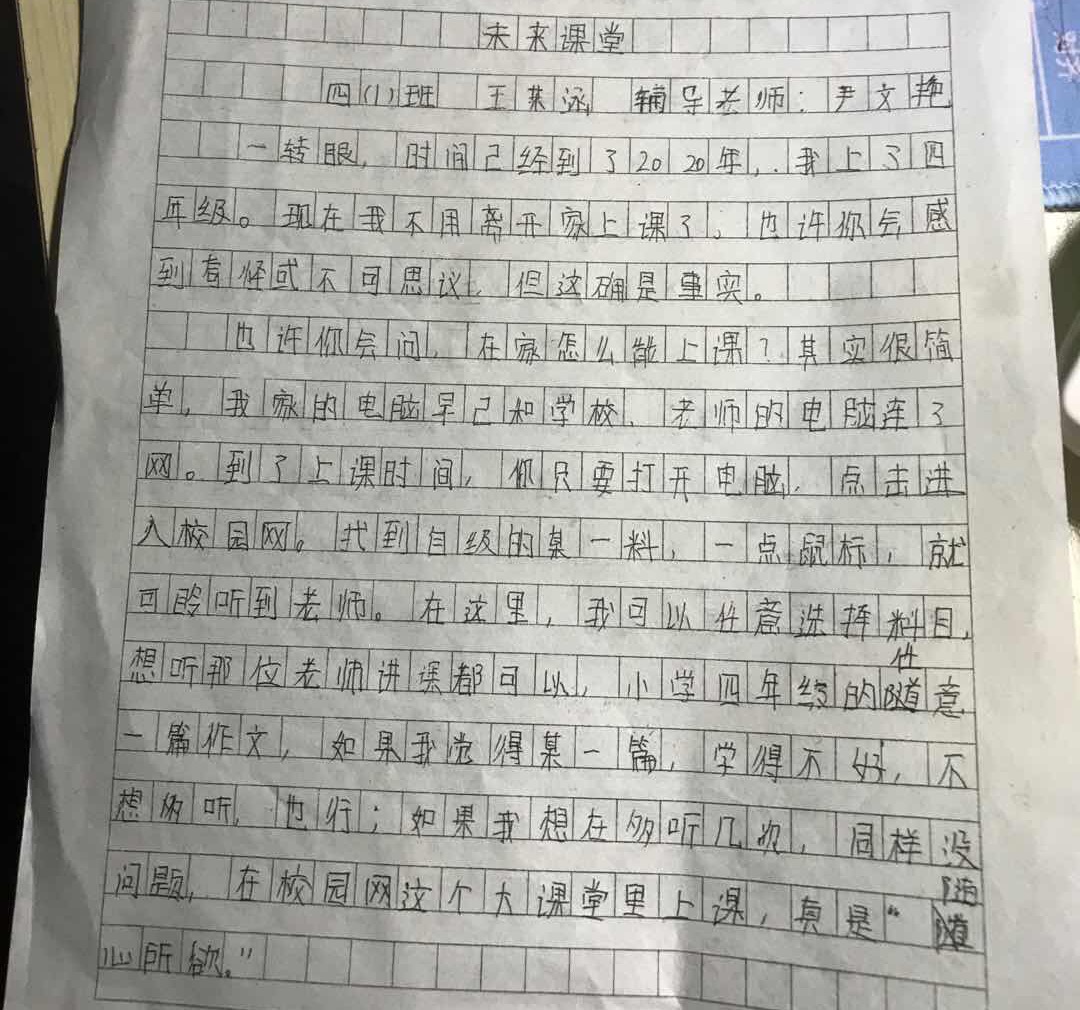 未来课堂
四(1)班 王 涵 辅导老师:尹文艳
一转眼,时间已经到了2020年,我上了四
年级。现在我不用离开家上课了。也许你会感
到奇怪或不可思议,但这确是事实。
也许你会问,在家怎么能上课?其实很简
单,我家的电脑早已和学校、老师的电脑连了
网。到了上课时间,你只要打开电脑,点击进
入校园网。找到自级的某一料,一点鼠标,就
可以听到老师。在这里,我可以任意选择料目,
想听那位老师讲课都可以,小学四年级的随意
什
一篇作文,如果我觉得某一篇,学得不好,不
想多听,也行;如果我想在多听几次,同样没
问题,在校园网这个大课堂里上课,真是“随
心所欲。”